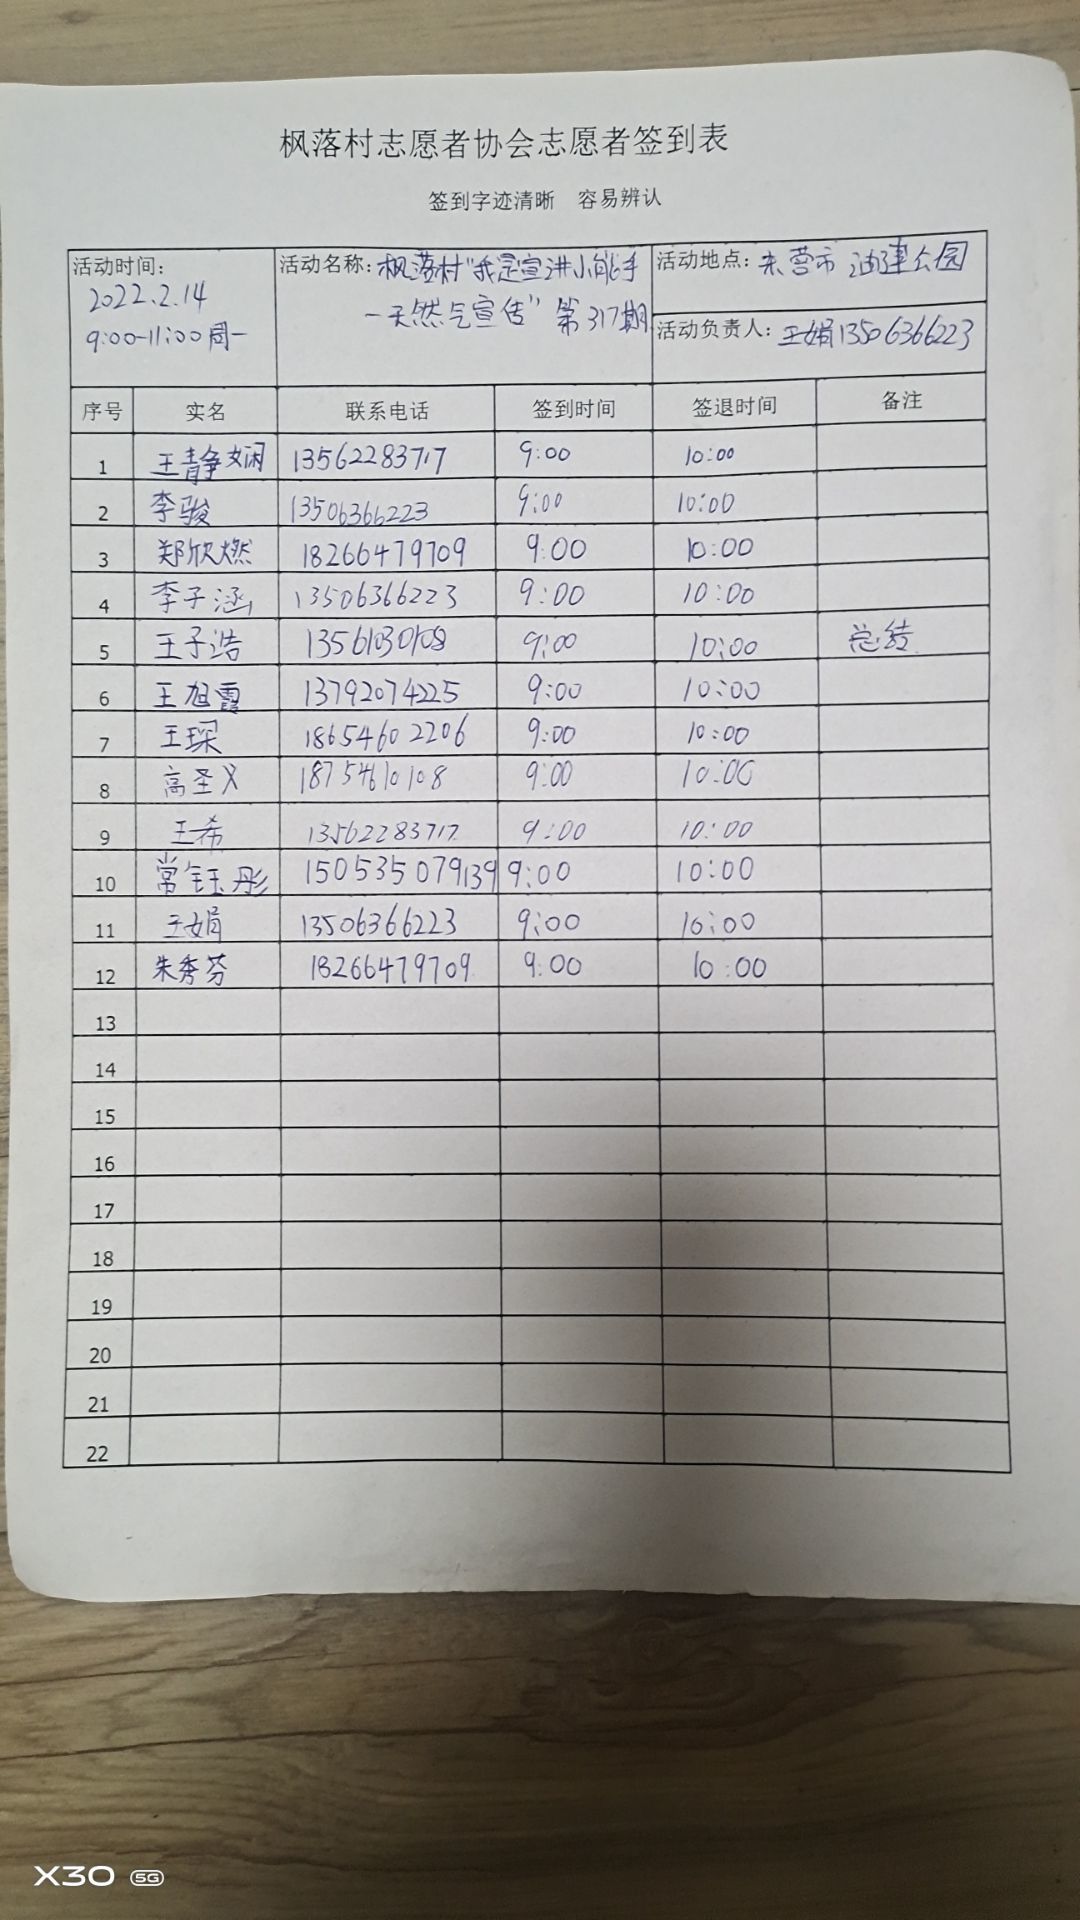 枫落村志愿者协会志愿者签到表
签到字迹清晰 容易辨认
活动时间:
2022.2.14
9:00-11:00周一
活动名称:枫落村"我是宣讲小能手
—天然气宣传"第317期
活动地点:东营市 油建公园
活动负责人:王娟13506366223
序号 实名 联系电话 签到时间 签退时间 备注
1 王静娴 13562283717 9:00 10:00
2 李骏 13506366223 9:00 10:00
3 郑欣燃 18266479709 9:00 10:00
4 李子涵 13506366223 9:00 10:00
5 王子浩 13561030108 9:00 10:00 总结
6 王旭霞 13792074225 9:00 10:00
7 王琛 18654602206 9:00 10:00
8 高圣义 18754610108 9:00 10:00
9 王希 13562283717 9:00 10:00
10 常钰彤 150535079139 9:00 10:00
11 王娟 13506366223 9:00 10:00
12 朱秀芬 18266479709 9:00 10:00
13
14
15
16
17
18
19
20
21
22
X30 5G